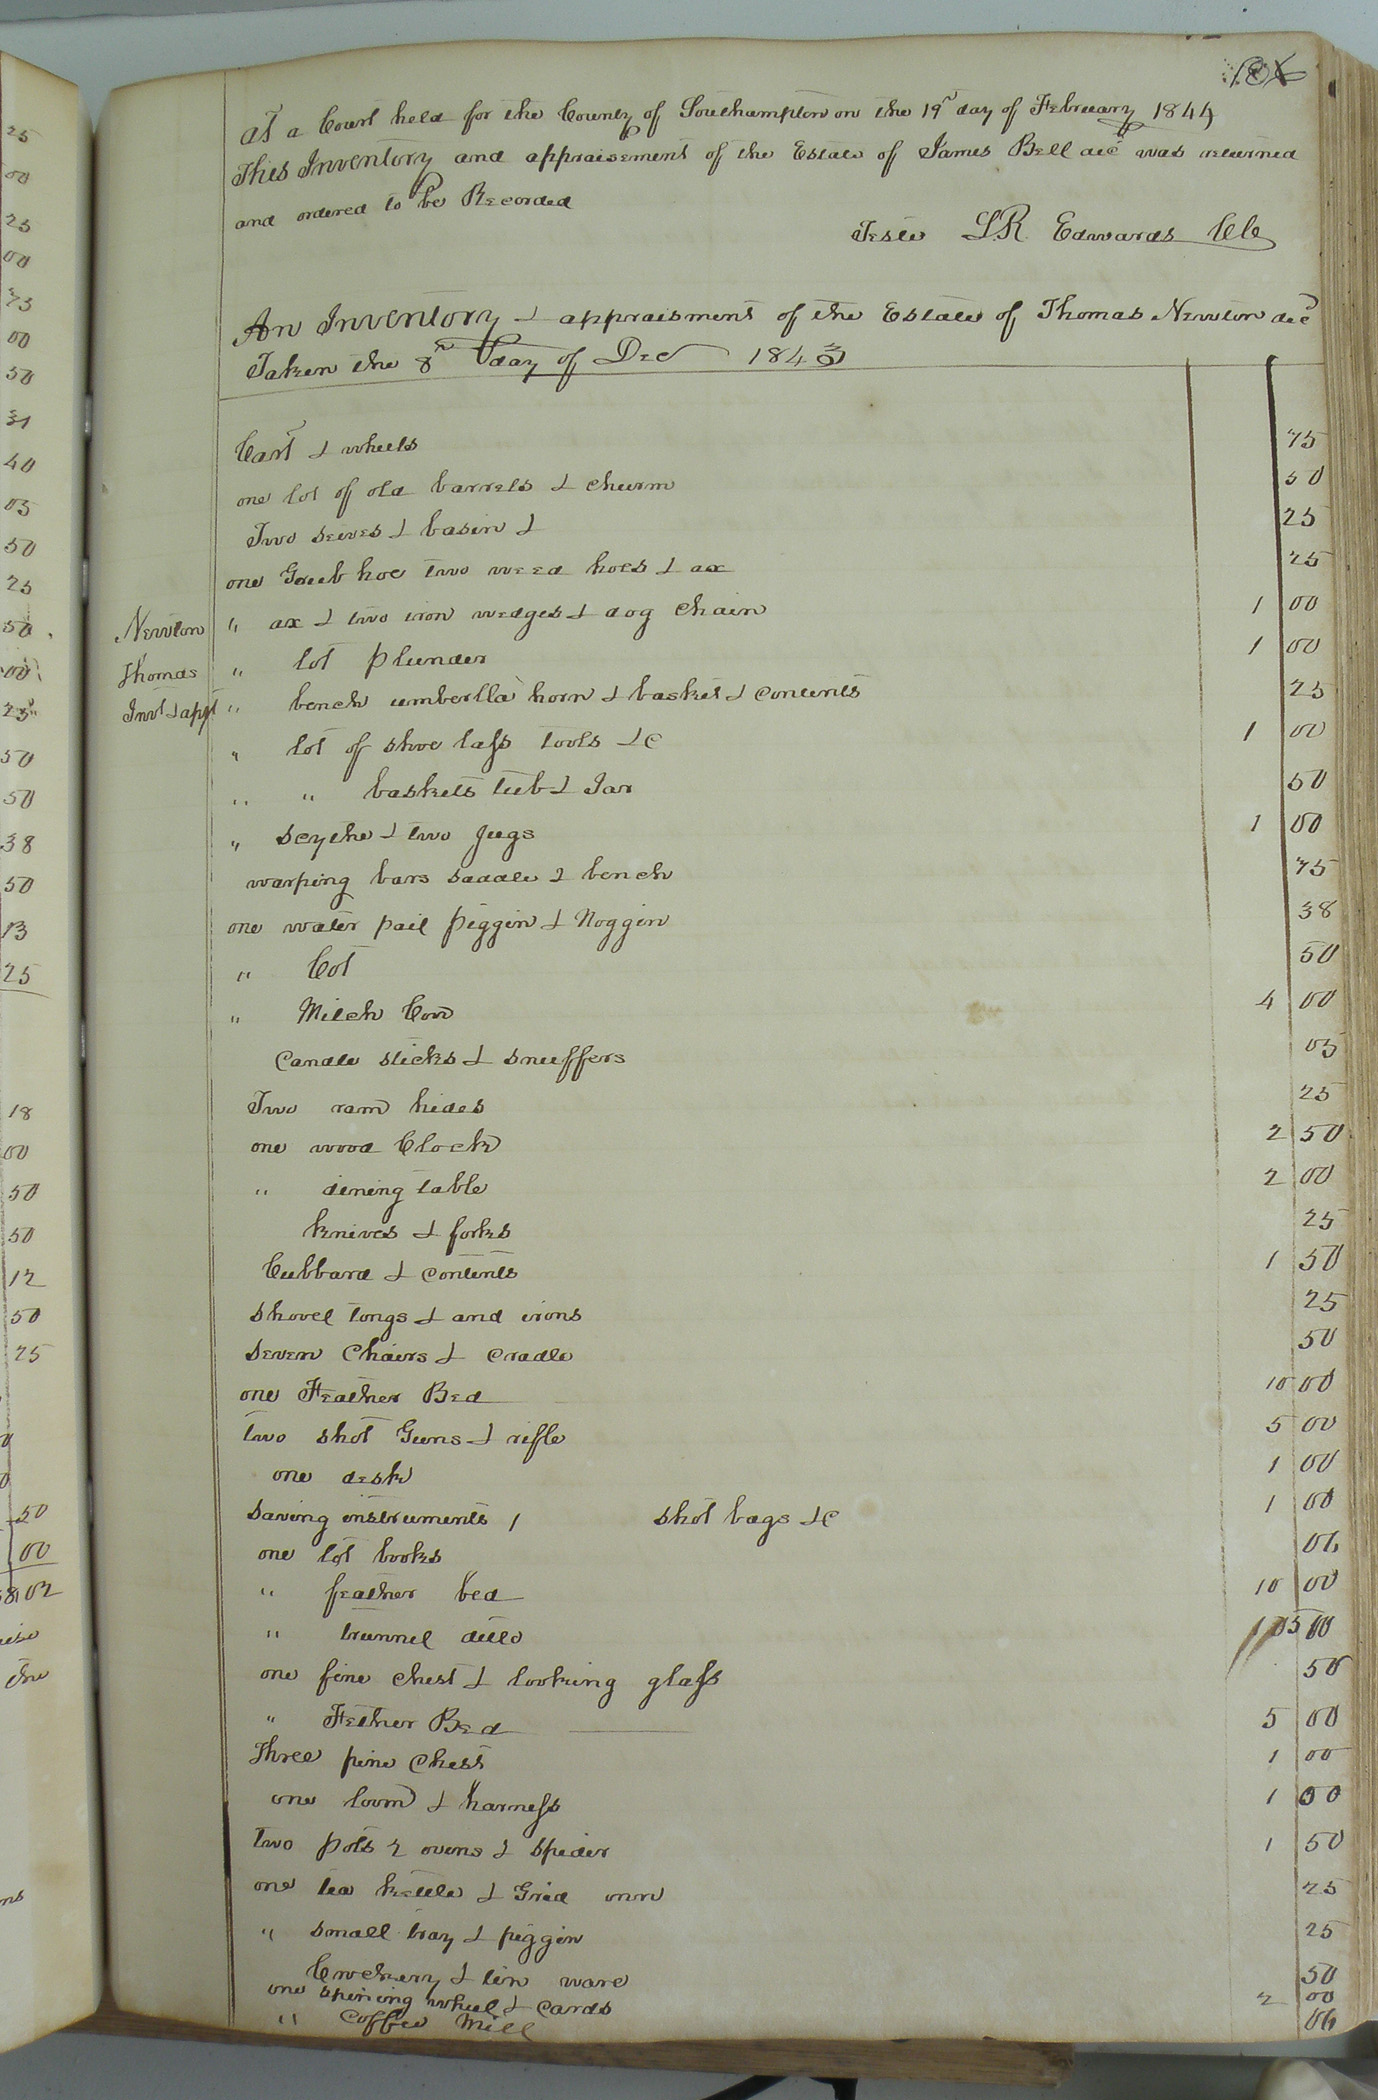 At a Court held for the County of Southampton on the 19th day of February 1844
This Inventory and appraisement of the Estate of James Bell decd was returned
and ordered to be Recorded
Teste L.R. Edwards Clk
An Inventory & appraisment of the Estate of Thomas Newton decd
Taken the 8th day of Dec 1843
Newton
Thomas
Invt & appt
Cart & wheels 75
one lot of old barrels & churn 50
Two seives & basin & 25
one Grub hoe two weed hoes & ax 25
" ax & two iron wedges & dog chain 1 00
" lot plunder 1 00
" bench umberlla horn & basket & contents 25
" lot of shoe lass tools &c 1 00
" " baskets tub & Jar 50
" scythe & two Jugs 1 00
warping bars saddle & bench 75
one water pail piggin & Noggin 38
" Cot 50
" Milch Cow 4 00
Candle sticks & snuffers 05
Two ram hides 25
one wood Clock 2 50
" dining table 2 00
knives & forks 25
Cubbard & contents 1 50
shovel tongs & and irons 25
seven Chairs & Cradle 50
one Feather Bed 10 00
two shot Guns & rifle 5 00
one desk 1 00
saving instruments / shot bags &c 1 00
one lot books 06
" feather bed 10 00
" trunnel ditto 5 00
one fine chest & looking glass 50
" Fether Bed 5 00
Three pine Chest 1 00
one loom & harness 1 00
two pots 2 ovens & spider 1 50
one tea kettle & Grid 25
" small tray & piggin 25
Crockery & tin ware 50
one spining wheel & Cards 2 00
" Coffee Mill 06
25
00
25
00
75
00
50
31
40
05
50
25
50
00
25
50
50
38
50
13
25
18
00
50
50
12
50
25
50
00
02
the